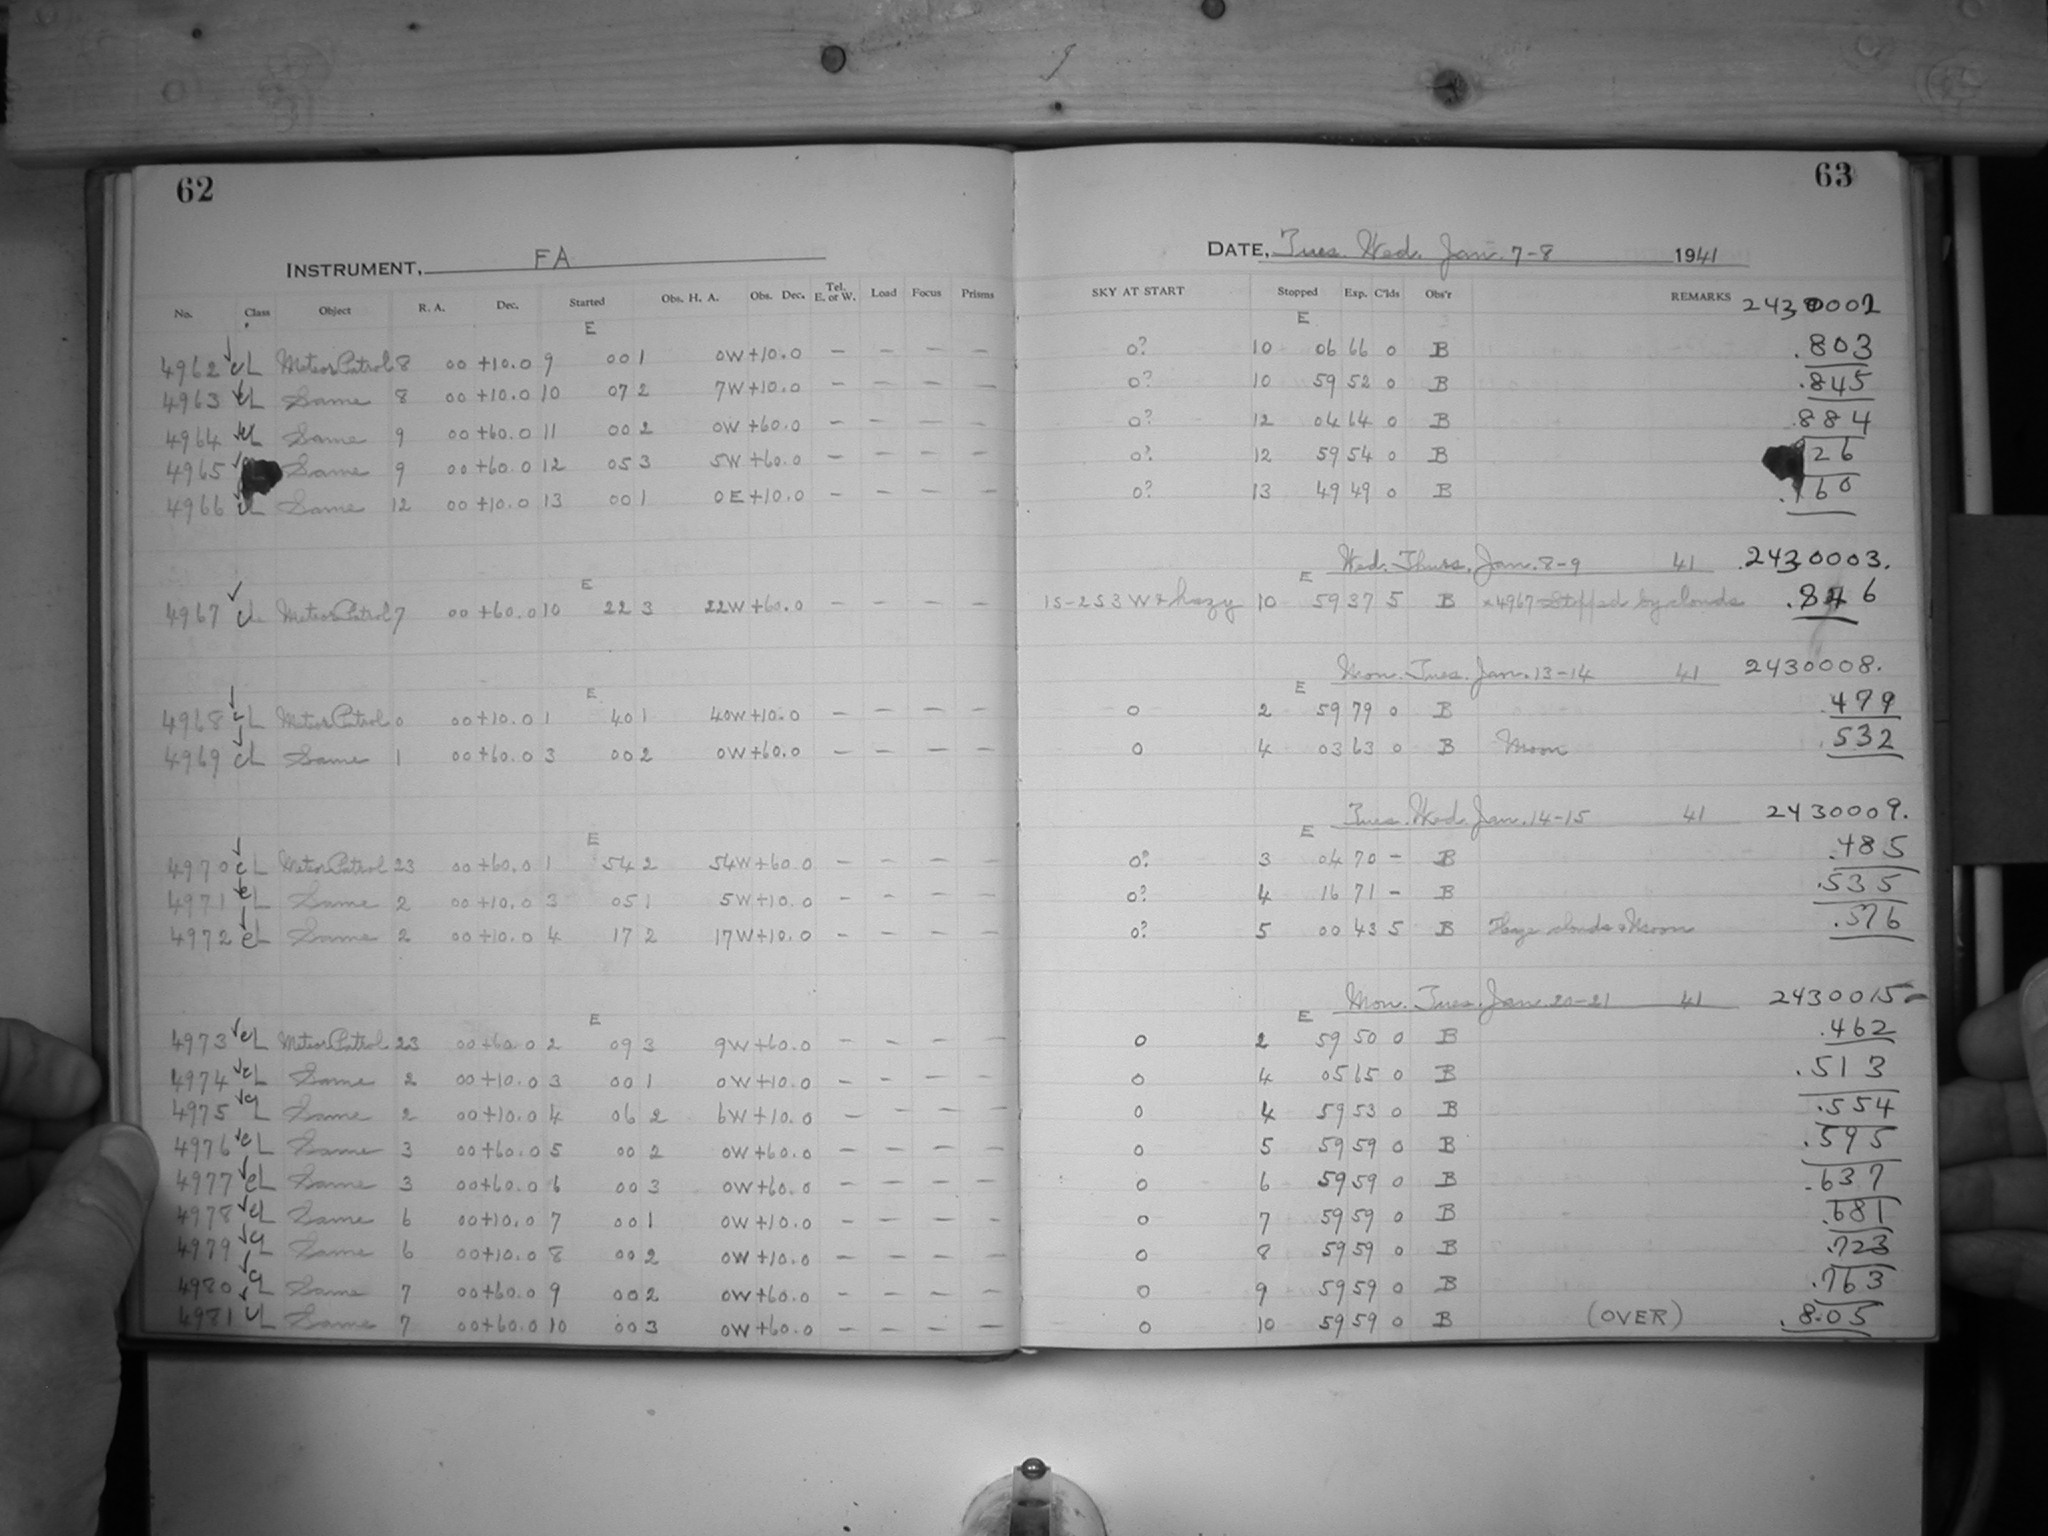 62
INSTRUMENT, FA
No. Class Object R. A. Dec. Started Obs. H. A. Obs. Dec. Tel. E. or W. Load Focus Prisms
E
4962 cL Meteor Patrol 8 00 +10.0 9 00 1 0W +10.0 — — — —
4963 cL Same 8 00 +10.0 10 07 2 7W +10.0 — — — —
4964 cL Same 9 00 +60.0 11 00 2 0W +60.0 — — — —
4965 Same 9 00 +60.0 12 05 3 5W +60.0 — — — —
4966 cL Same 12 00 +10.0 13 00 1 0E +10.0 — — — —
E
4967 cL Meteor Patrol 7 00 +60.0 10 22 3 22W +60.0 — — — —
E
4968 cL Meteor Patrol 0 00 +10.0 1 40 1 40W +10.0 — — — —
4969 cL Same 1 00 +60.0 3 00 2 0W +60.0 — — — —
E
4970 cL Meteor Patrol 23 00 +60.0 1 54 2 54W +60.0 — — — —
4971 eL Same 2 00 +10.0 3 05 1 5W +10.0 — — — —
4972 eL Same 2 00 +10.0 4 17 2 17W +10.0 — — — —
E
4973 eL Meteor Patrol 23 00 +60.0 2 09 3 9W +60.0 — — — —
4974 cL Same 2 00 +10.0 3 00 1 0W +10.0 — — — —
4975 cL Same 2 00 +10.0 4 06 2 6W +10.0 — — — —
4976 eL Same 3 00 +60.0 5 00 2 0W +60.0 — — — —
4977 eL Same 3 00 +60.0 6 00 3 0W +60.0 — — — —
4978 eL Same 6 00 +10.0 7 00 1 0W +10.0 — — — —
4979 cL Same 6 00 +10.0 8 00 2 0W +10.0 — — — —
4980 cL Same 7 00 +60.0 9 00 2 0W +60.0 — — — —
4981 cL Same 7 00 +60.0 10 00 3 0W +60.0 — — — —
63
DATE, Tues. Wed. Jan. 7-8 1941
SKY AT START Stopped Exp. C'lds Obs'r REMARKS 2430002
E
0? 10 06 66 0 B .803
0? 10 59 52 0 B .845
0? 12 04 64 0 B .884
0? 12 59 54 0 B 26
0? 13 49 49 0 B 60
Wed. Thurs. Jan. 8-9 41 2430003.
E
15-253 W & hazy 10 59 37 5 B x4967 Stopped by clouds .846
Mon. Tues. Jan. 13-14 41 2430008.
E
0 2 59 79 0 B .479
0 4 03 63 0 B Moon .532
Tues. Wed. Jan. 14-15 41 2430009.
E
0? 3 04 70 — B .485
0? 4 16 71 — B .535
0? 5 00 43 5 B Haze clouds & Moon .576
Mon. Tues. Jan. 20-21 41 2430015
E
0 2 59 50 0 B .462
0 4 05 65 0 B .513
0 4 59 53 0 B .554
0 5 59 59 0 B .595
0 6 59 59 0 B .637
0 7 59 59 0 B .681
0 8 59 59 0 B .723
0 9 59 59 0 B .763
0 10 59 59 0 B (OVER) .805